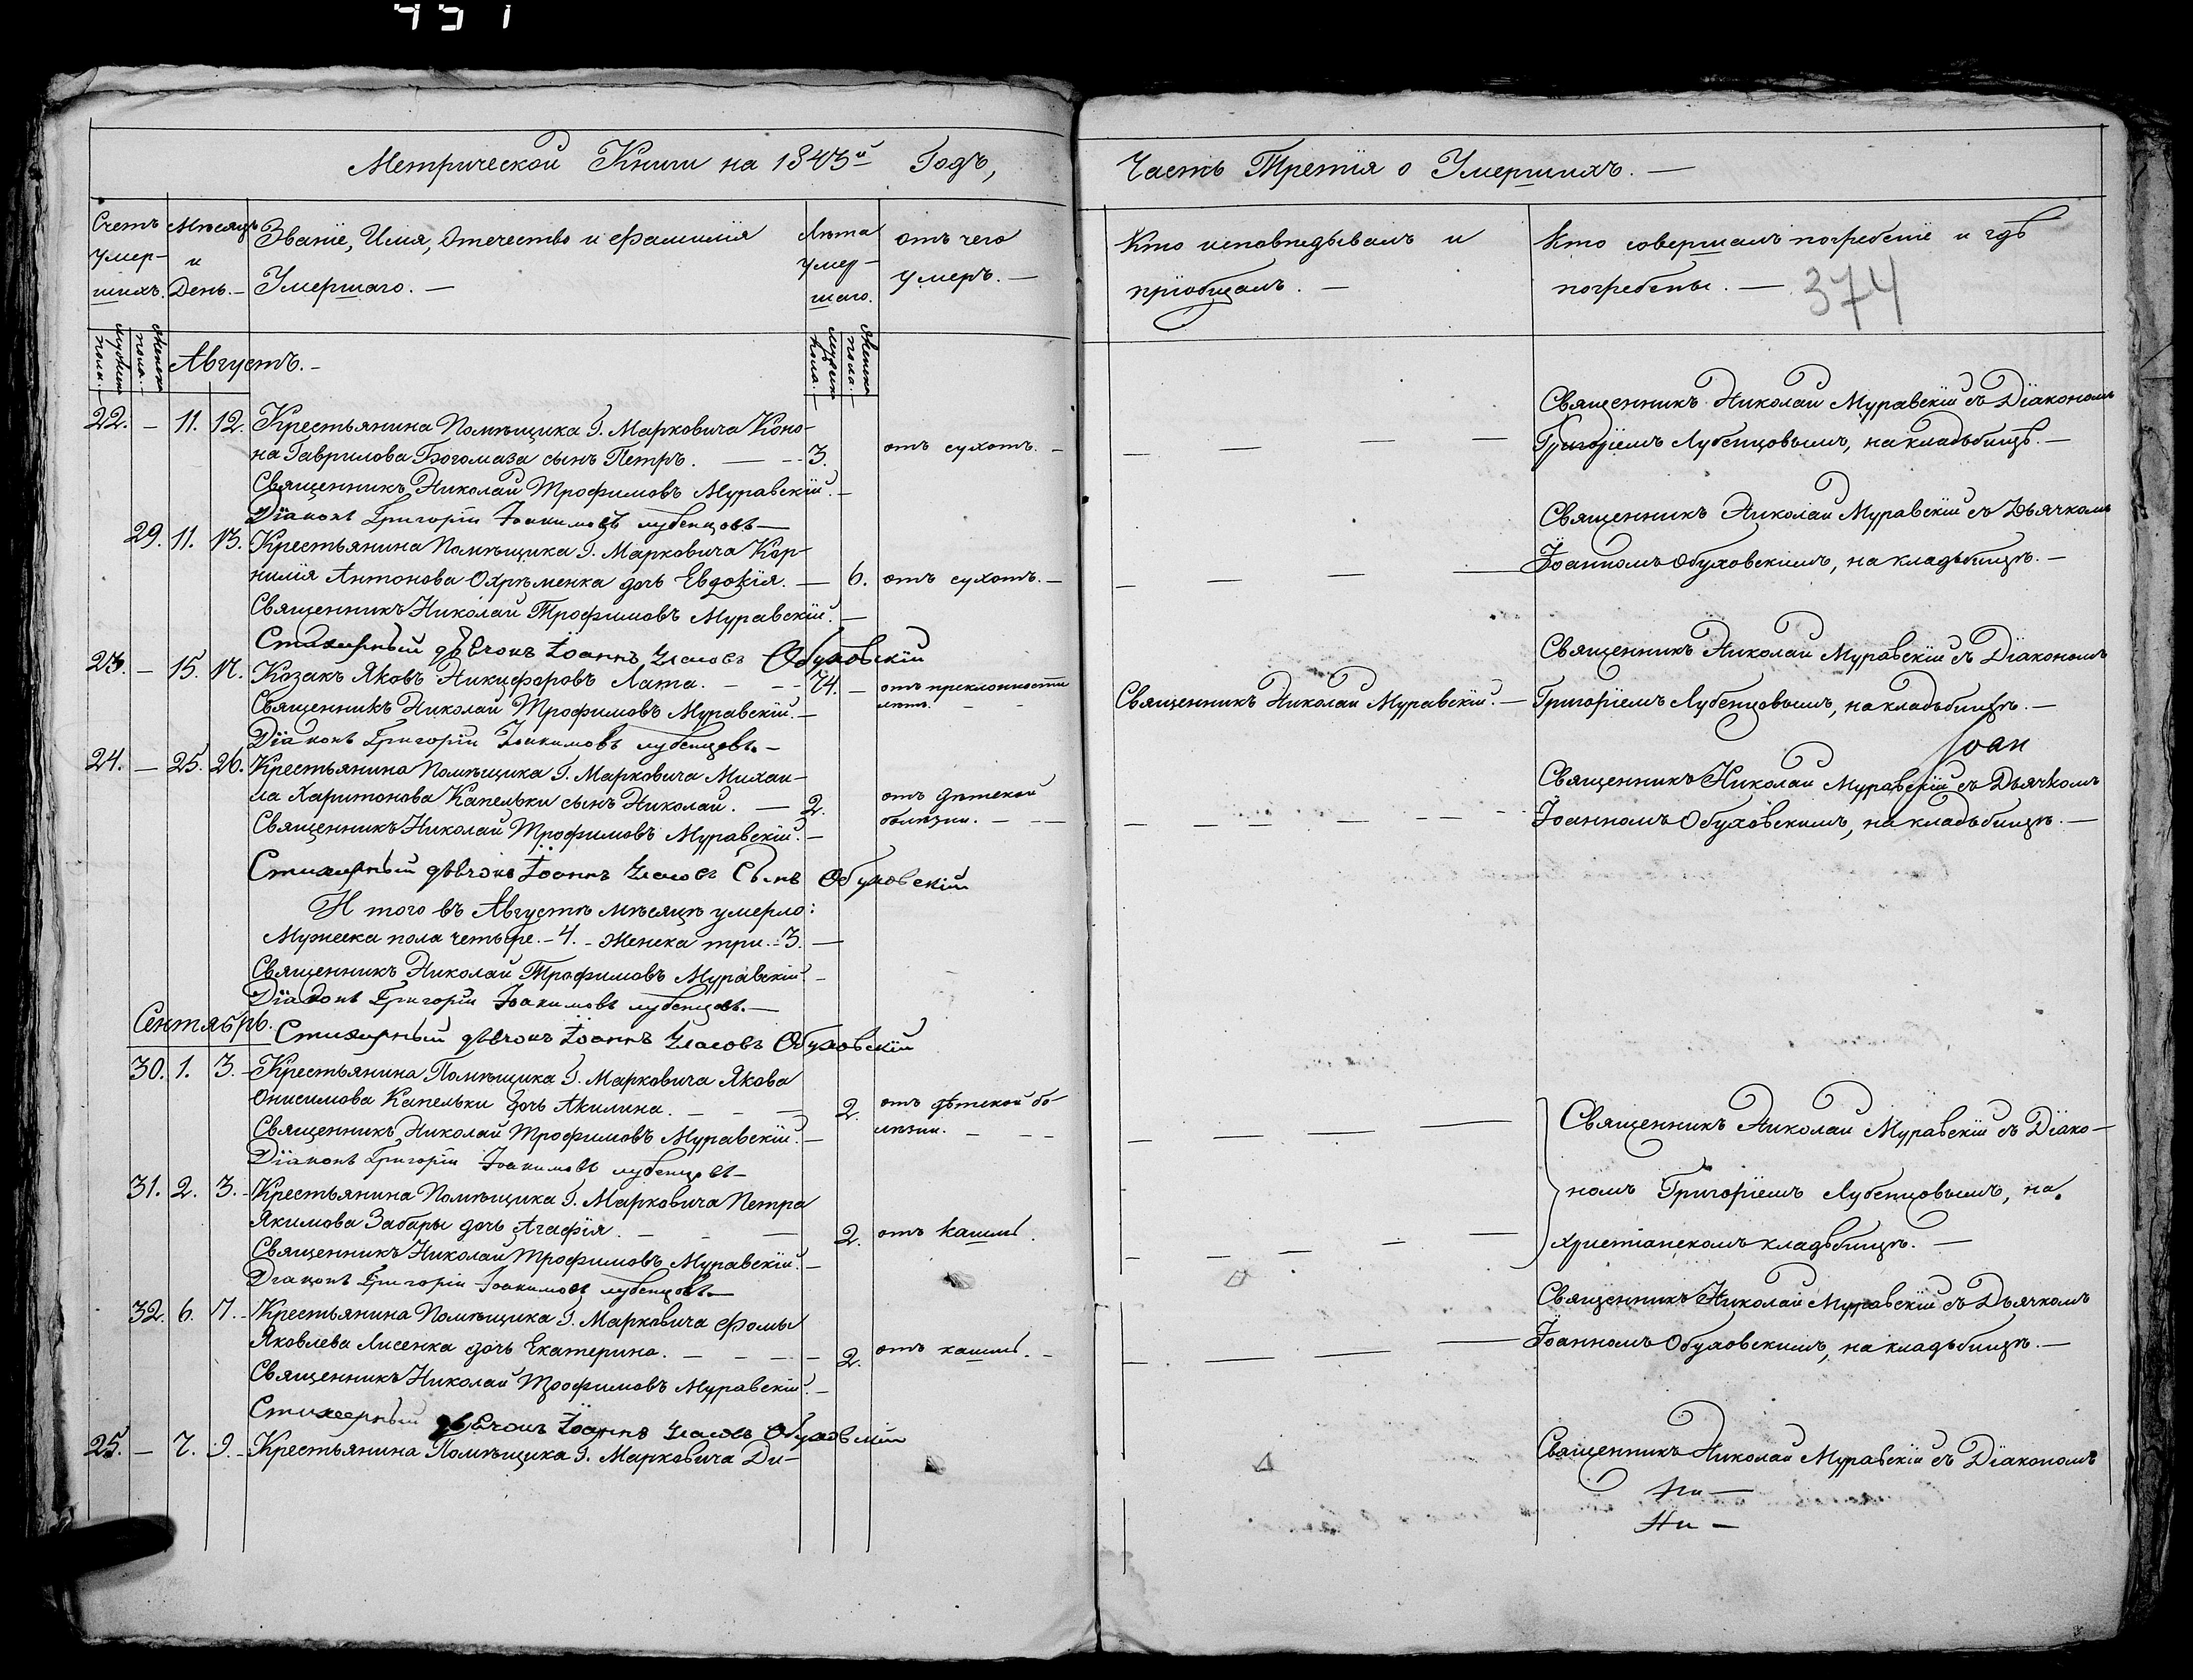 451
Метрической Книги на 1843й Годъ,
Счетъ умер-шихъ.
Мѣсяцъ и День.-
Званіе, Имя, Отечество и фамилія
Умершаго. -
Лѣта умер-шаго.
отъ чего
умеръ. -
Мужеска пола. -
Женска пола. -
Августъ. -
Мужеска пола. -
Женска пола. -
22. - 11. 12. Крестьянина Помѣщика Г. Марковича Коно-
на Гаврилова Богомаза сынъ Петръ. - - - 3. отъ сухотъ. -
Священникъ Николай Трофимовъ Муравскій. -
Діаконъ Григорій Іоакимовъ Лубенцовъ -
29. 11. 13. Крестьянина Помѣщика Г. Марковича Кор-
нилія Антонова Охрѣменка дочь Евдокія. - 6. отъ сухотъ. -
Священникъ Николай Трофимовъ Муравскій. -
Стихарный дьячокъ Іоаннъ Власовъ Обуховскій
23. - 15. 17. Козакъ Яковъ Никифоровъ Лата. - - - 74. - отъ преклонности
лѣтъ. - -
Священникъ Николай Трофимовъ Муравскій. -
Діаконъ Григорій Іоакимовъ Лубенцовъ. -
24. - 25. 26. Крестьянина Помѣщика Г. Марковича Михаи-
ла Харитонова Капельки сынъ Николай. - 2. отъ дѣтской
болѣзни. - - -
Священникъ Николай Трофимовъ Муравскій. -
Стихарный дьячокъ Іоаннъ Власовъ Сынъ Обуховскій
И того въ Августѣ мѣсяцѣ умерло:
Мужеска пола четыре. - 4. - Женска три. - 3. -
Священникъ Николай Трофимовъ Муравскій. -
Діаконъ Григорій Іоакимовъ Лубенцовъ. -
Сентябрь.
Стихарный дьячокъ Іоаннъ Власовъ Обуховскій
30. 1. 3. - Крестьянина Помѣщика Г. Марковича Якова
Онисимова Капельки дочь Акилина. - - - 2. отъ дѣтской бо-
лѣзни. - - -
Священникъ Николай Трофимовъ Муравскій. -
Діаконъ Григорій Іоакимовъ Лубенцовъ -
31. 2. 3. - Крестьянина Помѣщика Г. Марковича Петра
Якимова Забары дочь Агафія. - - - 2. отъ кашлю.
Священникъ Николай Трофимовъ Муравскій. -
Діаконъ Григорій Іоакимовъ Лубенцовъ -
32. 6. 7. - Крестьянина Помѣщика Г. Марковича Фомы
Яковлева Лисенка дочь Екатерина. - - - - 2. отъ кашлю. -
Священникъ Николай Трофимовъ Муравскій. -
Стихарный дьячокъ Іоаннъ Власовъ Обуховскій
25. - 7. 9. - Крестьянина Помѣщика Г. Марковича Ди-
Часть Третія о Умершихъ. -
Кто исповѣдывалъ и
пріобщалъ. -
Кто совершалъ погребеніе и гдѣ
погребены. -
374
Священникъ Николай Муравскій съ Діакономъ
Григоріемъ Лубенцовымъ, на кладьбищѣ. -
Священникъ Николай Муравскій съ Дьячкомъ
Іоанномъ Обуховскимъ, на кладьбищѣ. -
Священникъ Николай Муравскій съ Діакономъ
Священникъ Николай Муравскій. - Григоріемъ Лубенцовымъ, на кладьбищѣ. -
Іоан
Священникъ Николай Муравскій съ Дьячкомъ
Іоанномъ Обуховскимъ, на кладьбищѣ. -
Священникъ Николай Муравскій съ Діако-
номъ Григоріемъ Лубенцовымъ, на
христіанскомъ кладьбищѣ. -
Священникъ Николай Муравскій съ Дьячкомъ
Іоанномъ Обуховскимъ, на кладьбищѣ. -
Священникъ Николай Муравскій съ Діакономъ
Ни -